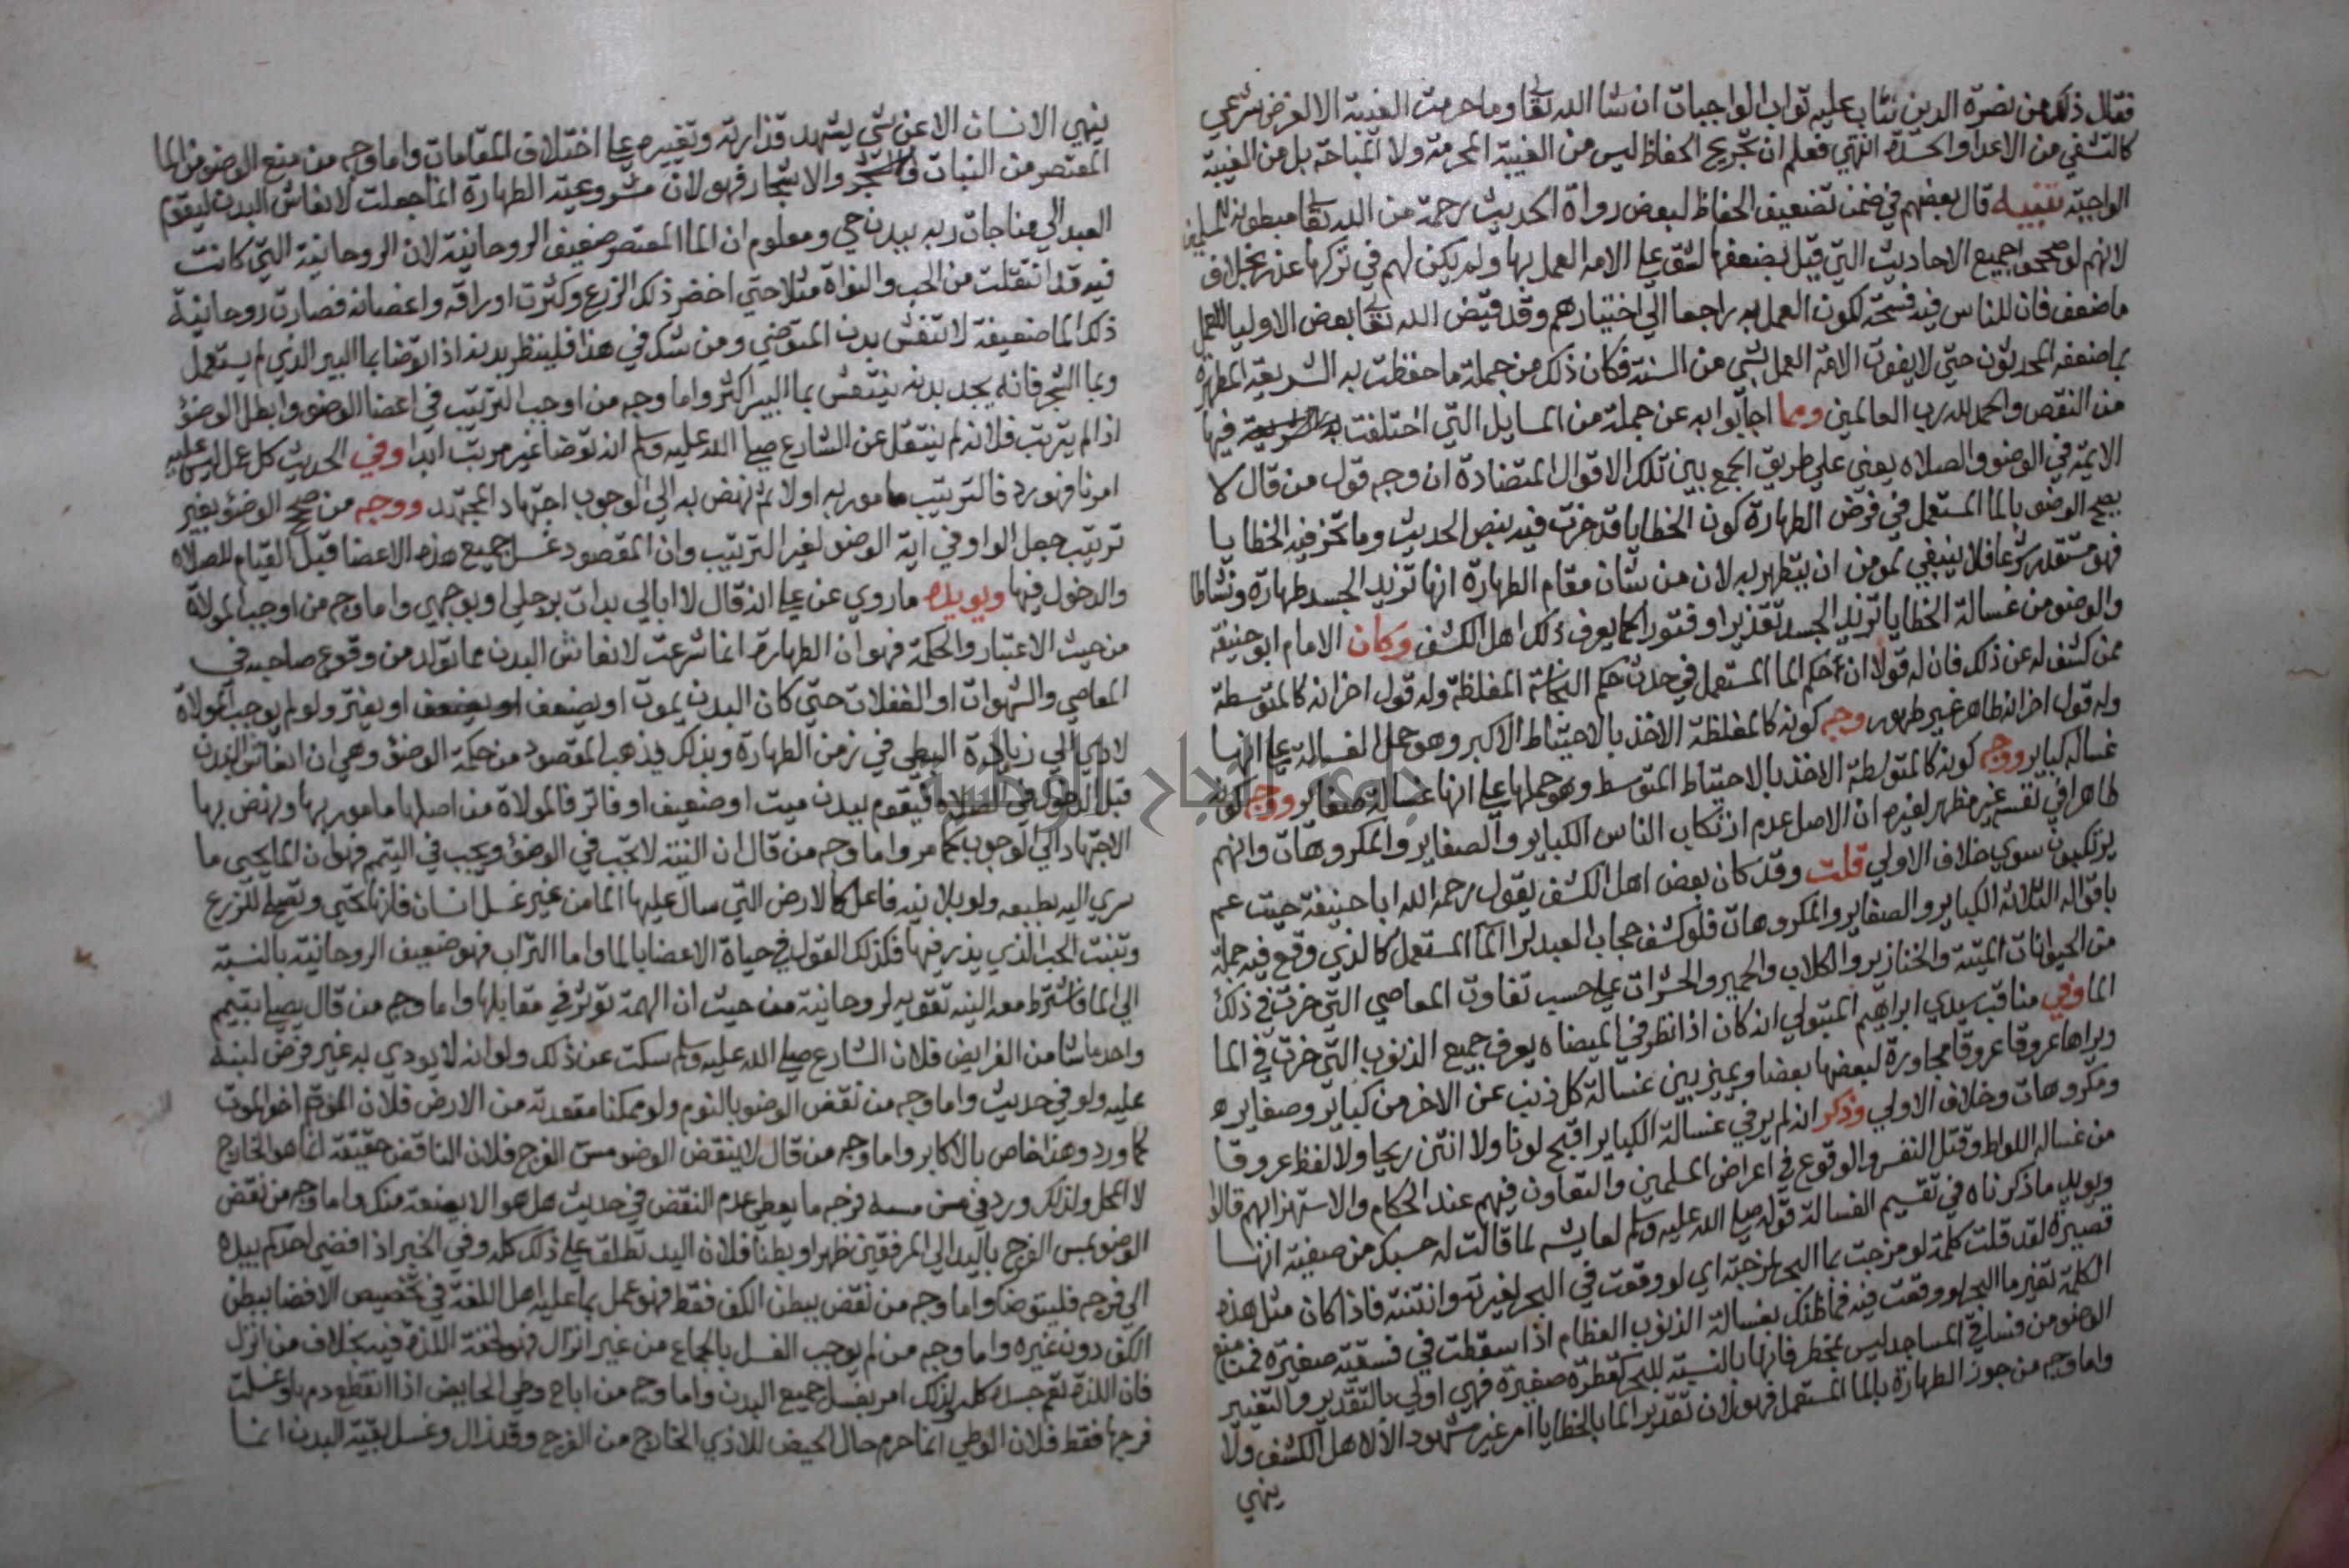 فقال ذلك من نصرة الدين يثاب عليه ثواب الواجبات ان شا الله تعالى وما حرمت الغيبة الا لغرض شرعي
كالتشفي من الاعدا والحسدة انتهي فعلم ان تجريح الحفاظ ليس من الغيبة المحرمة ولا المباحة بل من الغيبة
الواجبة تنبيه قال بعضهم في ضمن تضعيف الحفاظ لبعض رواة الحديث رحمة من الله تعالى
لانهم لو صححوا جميع الاحاديث التي قيل بضعفها لشق علي الامة العمل بها ولم يكن لهم في تركها عذر بخلاف
ما ضعف فان للناس فيه فسحة لكون العمل به راجعا الي اختيارهم وقد قيض الله تعالى بعض الاوليا للعمل
بما ضعفه المحدثون حتي لا يفوت الامة العمل بشي من السنة فكان ذلك من جملة ما حفظت به الشريعة المطهرة
من النقص والحمد لله رب العالمين ومما اجابوا به عن جملة من المسايل التي اختلفت فيها
الايمة في الوضو والصلاه يعني علي طريق الجمع بين تلك الاقوال المتضادة ان وجه قول من قال لا
يصح الوضو بالما المستعمل في فرض الطهارة كون الخطايا قد خرت فيه بنص الحديث وما تخر فيه الخطايا
فهو مستقذر شرعا فلا ينبغي لمومن ان يتطهر به لان من شان مقام الطهارة انها تزيد الجسد طهارة ونشاطا
والوضو من غسالة الخطايا تزيد الجسد تقذيرا وفتورا كما يعرف ذلك اهل الكشف وكان الامام ابو حنيفة
ممن كشف له عن ذلك فان له قولا ان حكم الما المستعمل في حدث حكم النجاسة المغلظة وله قول اخر انه كالمتوسطة
وله قول اخر انه طاهر غير طهور وجه كونه كالمغلظة الاخذ بالاحتياط الاكبر وهو حمل الغسالة علي انها
غسالة كباير ووجه كونه كالمتوسطة الاخذ بالاحتياط المتوسط وهو حملها علي انها غسالة صغاير ووجه كونه
طاهرا في نفسه غير مطهر لغيره ان الاصل عدم ارتكاب الناس الكباير والصغاير والمكروهات وانهم
يرتكبون سوي خلاف الاولي قلت وقد كان بعض اهل الكشف يقول رحم الله ابا حنيفة حيث عم
باقواله الثلاثة الكباير والصغاير والمكروهات فلو كشف حجاب العبد لراي الما المستعمل كالذي وقع فيه جملة
من الحيوانات الميتة والخنازير والكلاب والحمير والحشرات علي حسب تفاوت المعاصي التي خرت في ذلك
الما وفي مناقب سيدي ابراهيم المتبولي انه كان اذا نظر في الميضاه يعرف جميع الذنوب التي خرت في الما
ويراها عروقا عروقا مجاورة لبعضها بعضا ويميز بين غسالة كل ذنب عن الاخر من كباير وصغايره
ومكروهات وخلاف الاولي وذكر انه لم ير في غسالة الكباير اقبح لونا ولا انتن ريحا ولا عروقا
من غسالة اللواط وقتل النفس والوقوع في اعراض المسلمين والتعاون فيهم عند الحكام والاستهزا بهم قالوا
ويويد ما ذكرناه في تقسيم الغسالة قوله صلي الله عليه وسلم لعايشه لما قالت له حسبك من صفية انها
قصيرة لقد قلت كلمة لو مزجت بما البحر لمزجته اي لو وقعت في البحر لغيرته وانتنته فاذا كان مثل هذه
الكلمة تغير ما البحر لو وقعت فيه فما ظنك بغسالة الذنوب العظام اذا سقطت في فسقية صغيرة فمن منع
الوضو من فساقي المساجد ليس بمخطر فانها بالنسبة للبحر كقطرة صغيرة فهي اولي بالتقذير والتغيير
واما وجه من جوز الطهارة بالما المستعمل فهو لان تقذير الما بالخطايا امر غير مشهود الا لاهل الكشف ولا
ينهي
ينهي الانسان الا عن شي يشهد قذارته وتغييره علي اختلاف المقامات واما وجه من منع الوضو من الما
المعتصر من النبات والاشجار فهو لان مشروعية الطهارة انما جعلت لانعاش البدن ليقوم
العبد الي مناجات ربه ببدن حي ومعلوم ان الما المعتصر ضعيف الروحانية لان الروحانية التي كانت
فيه قد انتقلت من الحب والنواة مثلا حتي اخضر ذلك الزرع وكثرت اوراقه واغصانه فصارت روحانية
ذلك الما ضعيفة لا تنعش بدن المتوضي ومن شك في هذا فلينظر بدنه اذا توضا بما البير الذي لم يستعمل
وبما الشجر فانه يجد بدنه ينتعش بما البير اكثر واما وجه من اوجب الترتيب في اعضا الوضو وابطل الوضؤ
اذا لم يترتب فلانه لم ينتقل عن الشارع صلي الله عليه وسلم انه توضا غير مرتب ابدا وفي الحديث كل عمل ليس عليه
امرنا فهو رد فالترتيب مامور به اولا ثم نهض به الي الوجوب اجتهاد المجتهد ووجه من صحح الوضؤ بغير
ترتيب جعل الواو في اية الوضو لغير الترتيب وان المقصود غسل جميع هذه الاعضا قبل القيام للصلاه
والدخول فيها ويويده ما روي عن علي انه قال لا ابالي بدات برجلي او بوجهي واما وجه من اوجب الموالاة
من حيث الاعتبار والحكمة فهو ان الطهارة انما شرعت لانعاش البدن مما تولد من وقوع صاحبه في
المعاصي والشهوات او الغفلات حتي كان البدن يموت او يضعف او يفتر ولو لم يوجب الموالاة
لادي الي زيادة البطي في زمن الطهارة وبذلك يذهب المقصود من حكمة الوضؤ وهي ان انعاش البدن
قبل الدخول في الصلاة فيقوم ببدن ميت او ضعيف او فاتر فالموالاة من اصلها مامور بها ونهض بها
الاجتهاد الي الوجوب كما مر واما وجه من قال ان النية لا تجب في الوضؤ ويجب في التيمم فهو ان الما يحيي ما
سري اليه بطبعه ولو بلا نية فاعل كالارض التي سال عليها الما من غير غسل انسان فانها تحيي وتصلح للزرع
وتنبت الحب الذي يذر فيها فكذلك القول في حياة الاعضا بالما واما التراب فهو ضعيف الروحانية بالنسبة
الي الما فاشترط معه النية تقويه لروحانية من حيث ان الهمة توثر في مقابلها واما وجه من قال يصلي بتيمم
واحد ما شا من الفرايض فلان الشارع صلي الله عليه وسلم سكت عن ذلك ولو انه لا يودي به غير فرض لبنه
عليه ولو في حديث واما وجه من نقض الوضو بالنوم ولو ممكنا مقعدته من الارض فلان النوم اخو الموت
كما ورد وهذا خاص بالاكابر واما وجه من قال لا ينقض الوضو مس الفرج فلان الناقض حقيقة انما هو الخارج
لا المحل ولذلك ورد في من مسه فرجه ما يعطي عدم النقض في حديث هل هو الا بضعة منك واما وجه من نقض
الوضو بمس الفرج باليد الي المرفقين ظهرا وبطنا فلان اليد تطلق علي ذلك كله وفي الخبر اذا افضي احدكم بيده
الي فرجه فليتوضا واما وجه من نقض ببطن الكف فقط فهو عمل بما عليه اهل اللغة في تخصيص الافضا ببطن
الكف دون غيره واما وجه من لم يوجب الغسل بالجماع من غير انزال فهو لخفة اللذة فيه بخلاف من انزل
فان اللذة تعم جسده كله ولذلك امر بغسل جميع البدن واما وجه من اباح وطي الحايض اذا انقطع دمها وغسلت
فرجها فقط فلان الوطي انما حرم حال الحيض للاذي الخارج من الفرج وقد زال وغسل بقية البدن انما
جامعة النجاح الوطنية